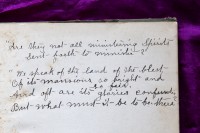 Are they not all ministering Spirits
Sent forth to minister?
"We speak of the land of the blest
Of its mansions so bright and
so fair,
And oft are its glories confessed,
But what must it be to be there